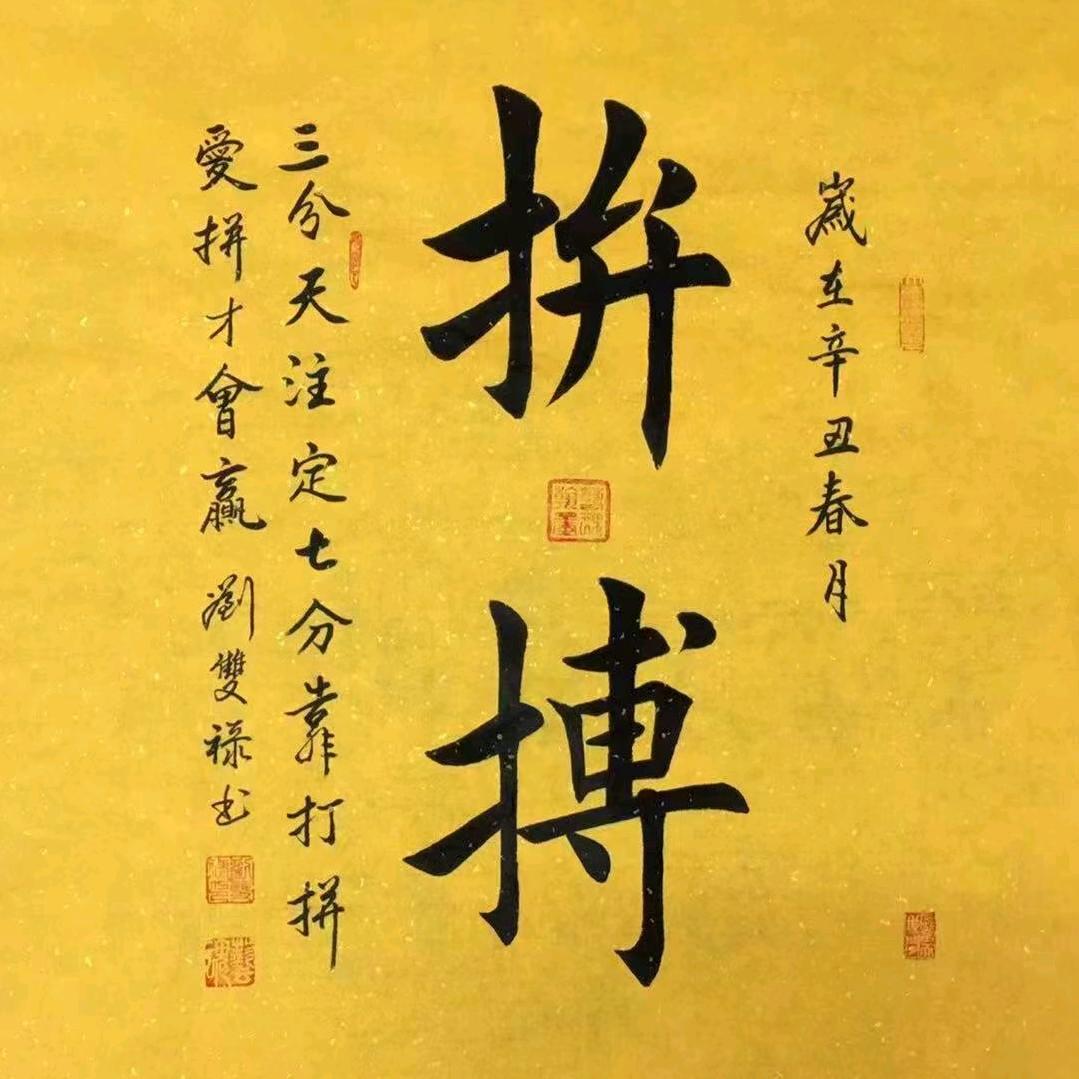 歲在辛丑春月
拼搏
三分天注定七分靠打拼
愛拼才會贏 劉雙祿书